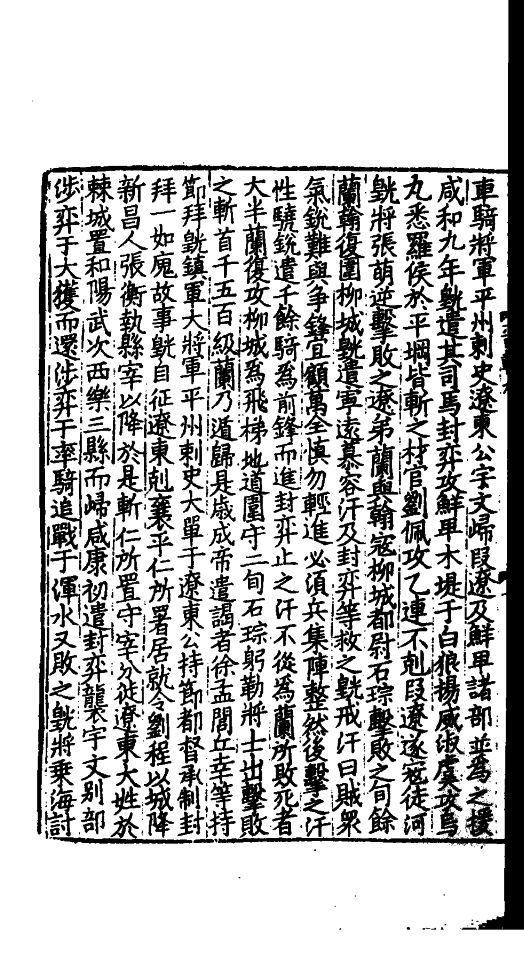 車騎將軍平州刺史遼東公宇文歸段遼及鮮卑諸部並為之援
咸和九年皝遣其司馬封弈攻鮮卑木堤于白狼揚威淑虞攻烏
九悉羅侯於平堈皆斬之材官劉佩攻乙連不剋段遼遂寇徒河
皝將張萌逆擊敗之遼弟蘭與翰寇柳城都尉石琮擊敗之旬餘
蘭翰復圍柳城皝遣寧遠慕容汗及封弈等救之皝戒汗曰賊衆
氣銳難與争鋒宜顧萬全慎勿輕進必須兵集陣整然後擊之汗
性驍銳遣千餘騎為前鋒而進封弈止之汗不從為蘭所敗死者
大半蘭復攻柳城為飛梯地道圍守二旬石琮躬勒將士出擊敗
之斬首千五百級蘭乃遁歸是歲成帝遣謁者徐孟閭丘幸等持
節拜皝鎮軍大將軍平州刺史大單于遼東公持節都督承制封
拜一如廆故事皝自征遼東剋襄平仁所署居就令劉程以城降
新昌人張衡執縣宰以降於是斬仁所置守宰分徙遼東大姓於
棘城置和陽武次西樂三縣而歸咸康初遣封弈襲宇文别部
涉弈于大獲而還涉弈于率騎追戰于渾水又敗之皝將乘海討